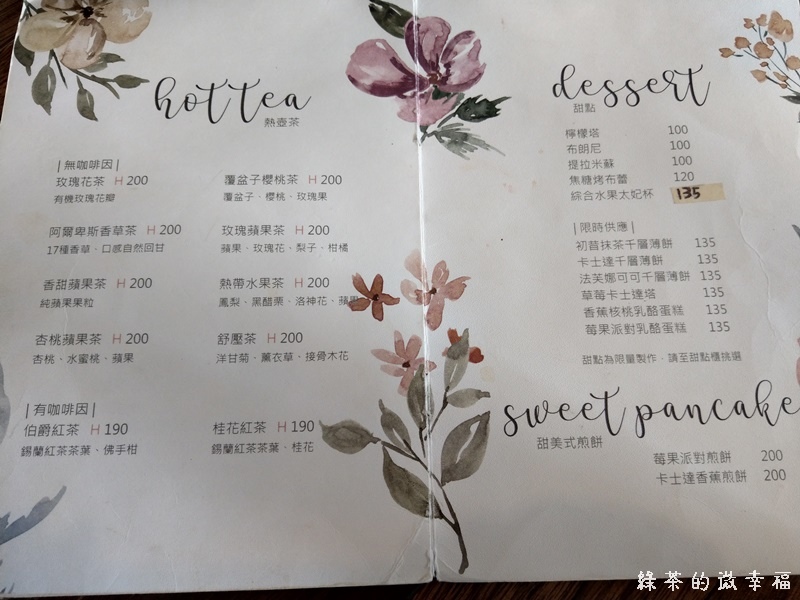 hot tea
熱壺茶
| 無咖啡因 |
玫瑰花茶 H 200
有機玫瑰花瓣
覆盆子櫻桃茶 H 200
覆盆子、櫻桃、玫瑰果
阿爾卑斯香草茶 H 200
17種香草、口感自然回甘
玫瑰蘋果茶 H 200
蘋果、玫瑰花、梨子、柑橘
香甜蘋果茶 H 200
純蘋果果粒
熱帶水果茶 H 200
鳳梨、黑醋栗、洛神花、蘋果
杏桃蘋果茶 H 200
杏桃、水蜜桃、蘋果
舒壓茶 H 200
洋甘菊、薰衣草、接骨木花
| 有咖啡因 |
伯爵紅茶 H 190
錫蘭紅茶茶葉、佛手柑
桂花紅茶 H 190
錫蘭紅茶茶葉、桂花
dessert
甜點
檸檬塔 100
布朗尼 100
提拉米蘇 100
焦糖烤布蕾 120
綜合水果太妃杯 135
| 限時供應 |
初昔抹茶千層薄餅 135
卡士達千層薄餅 135
法芙娜可可千層薄餅 135
草莓卡士達塔 135
香蕉核桃乳酪蛋糕 135
莓果派對乳酪蛋糕 135
甜點為限量製作，請至甜點櫃挑選
sweet pancake
甜美式煎餅
莓果派對煎餅 200
卡士達香蕉煎餅 200
綠茶的微幸福